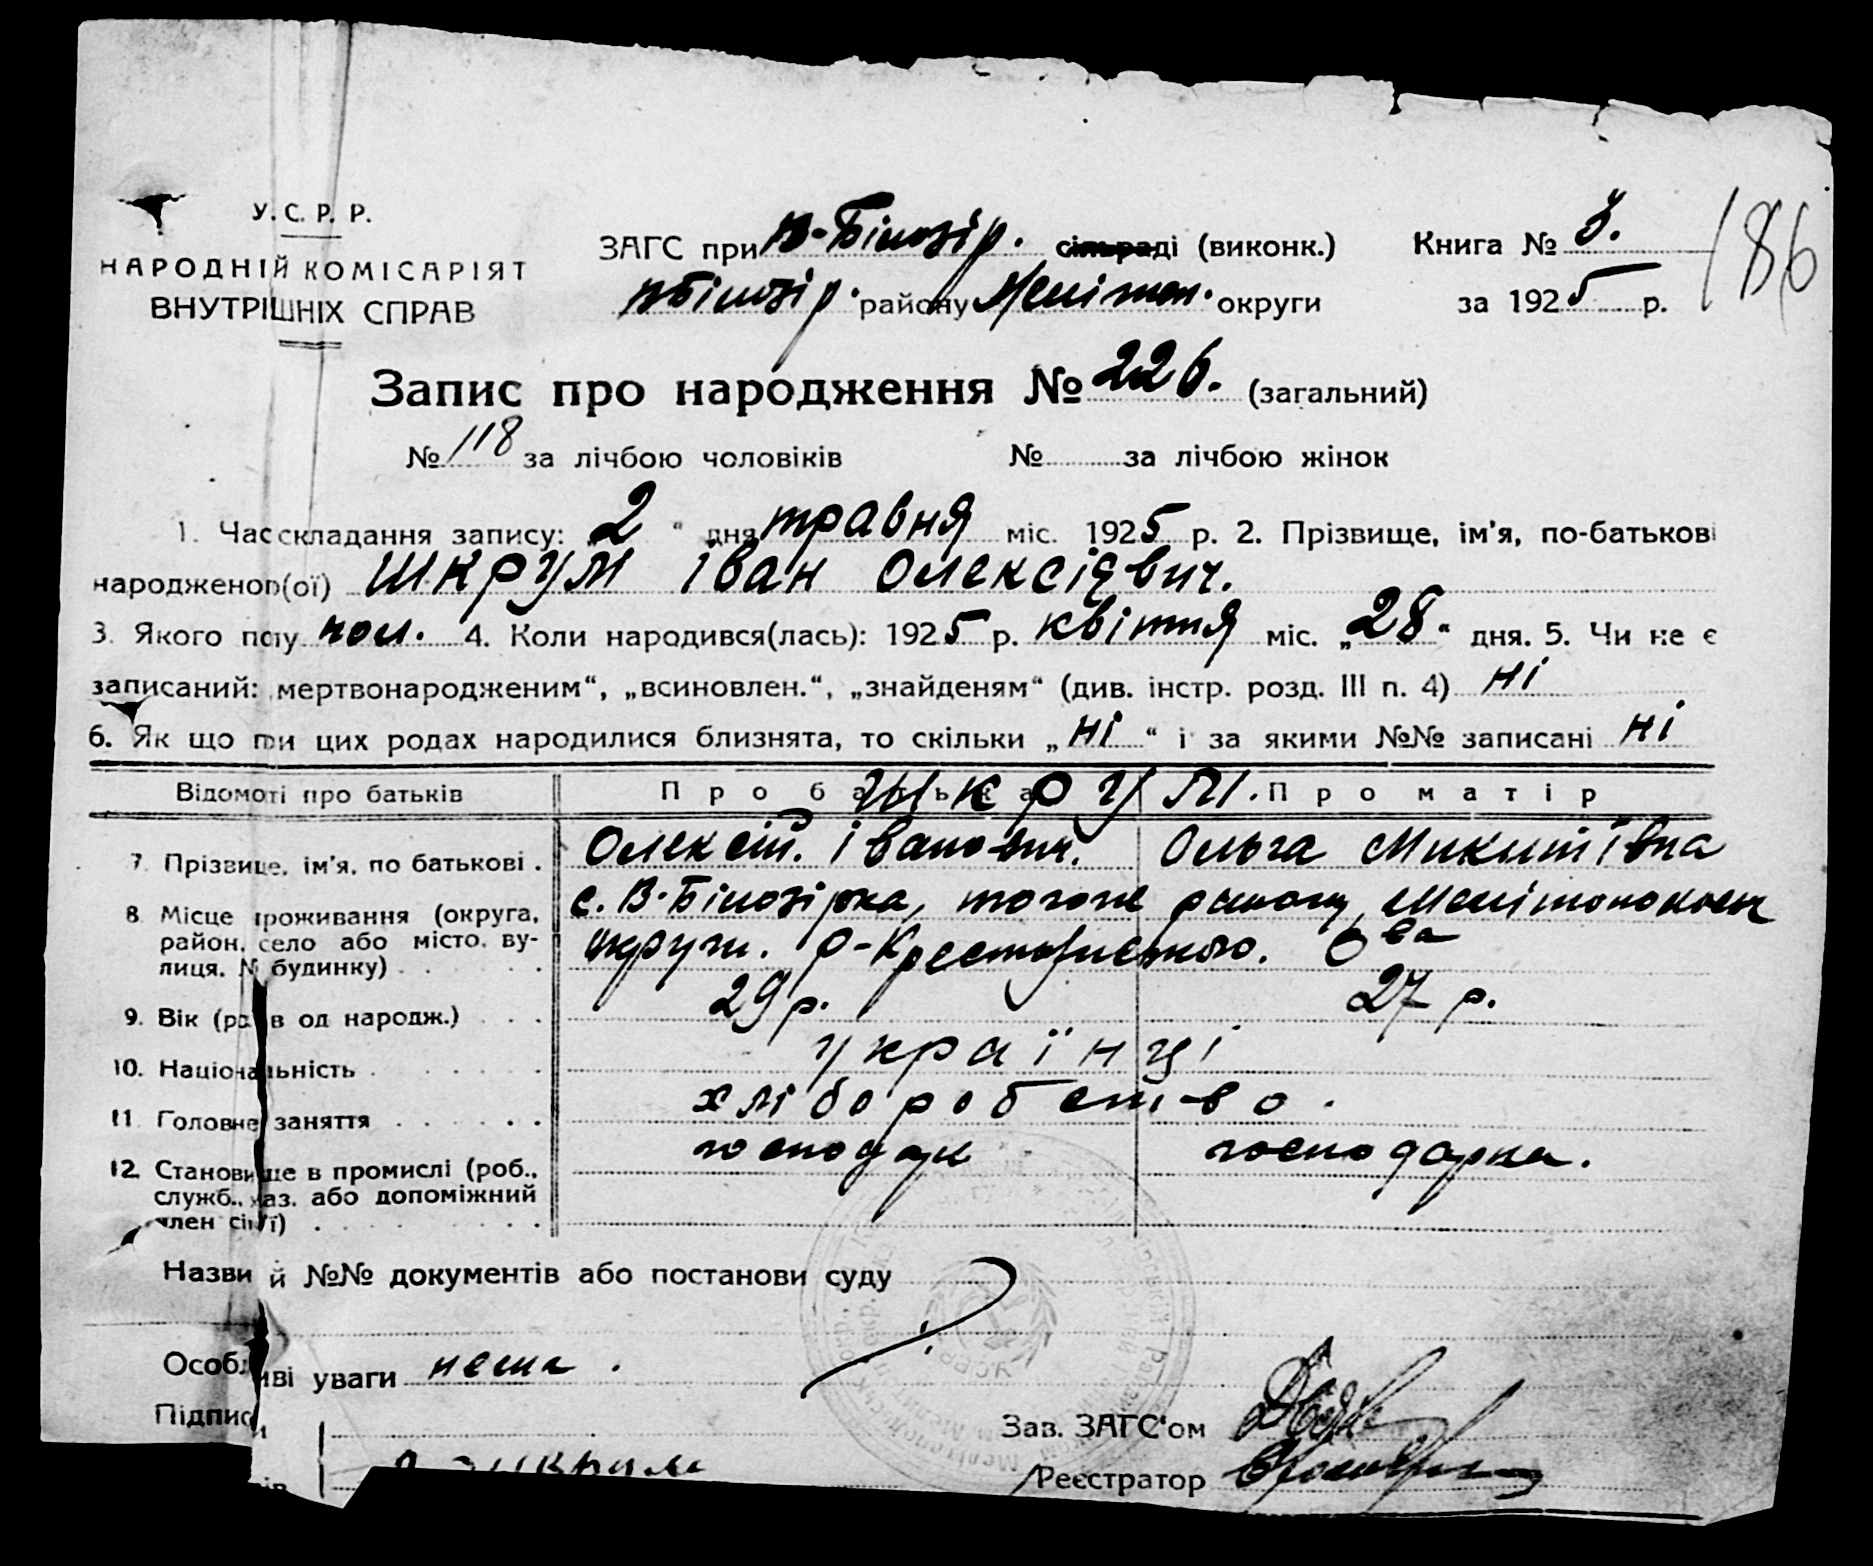 У.С.Р.Р.
НАРОДНІЙ КОМІСАРІЯТ
ВНУТРІШНІХ СПРАВ
ЗАГС при В-Білозір. сільраді (виконк.)
ВБілозір. району Меліт. округи
Книга №
за 1925 р.
186
Запис про народження № 226. (загальний)
№ 118 за лічбою чоловіків № за лічбою жінок
1. Час складання запису: „2“ дня травня міс. 1925 р. 2. Прізвище, ім'я, по-батькові
народженого(ої) Шкрум Іван Олексієвич.
3. Якого полу чол. 4. Коли народився(лась): 1925 р. квіття міс. „28“ дня. 5. Чи не є
записаний: мертвонародженим“, „всиновлен.“, „знайденям“ (див. інстр. розд. III п. 4) ні
6. Як що при цих родах народилися близнята, то скільки „ні“ і за якими №№ записані ні
Відомоті про батьків Про батька Про матір
Шкрум.
7. Прізвище, ім'я, по батькові . Олексій. Іванович. Ольга Микитівна
8. Місце проживання (округа, с. В-Білозірка, тогож району, Мелітопольськ
район, село або місто, ву- округи.
лиця, № будинку)
9. Вік (років од народж.) 29 р. 27 р.
10. Національність українці
11. Головне заняття хліборобство.
12. Становище в промислі (роб., господар господарка.
служб., хаз. або допоміжний
член сім'ї)
Назви й №№ документів або постанови суду
Особливі уваги нема.
Підписи
Зав. ЗАГС'ом
Реєстратор